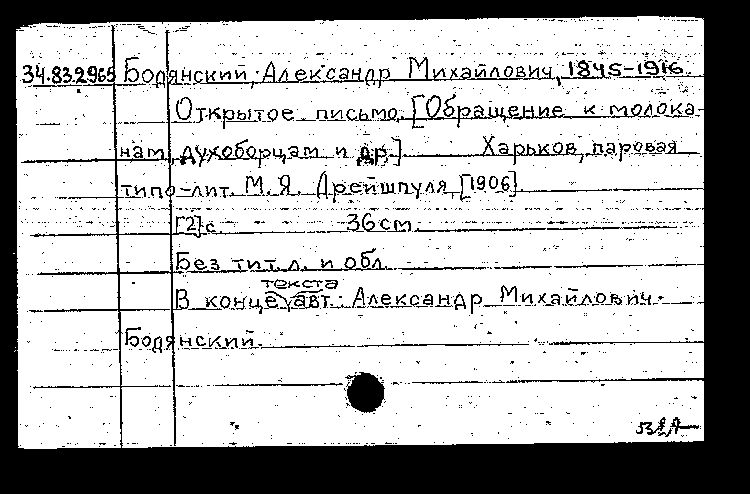 34.832965 Бодянский, Александр Михайлович, 1845-1916.
Открытое письмо. [Обращение к молока-
нам, духоборцам и др.] Харьков, паровая
типо-лит. М. Я. Дрейшпуля, [1906].
[2] с. 36 см.
Без тит. л. и обл.
текста
В конце авт.: Александр Михайлович
Бодянский.